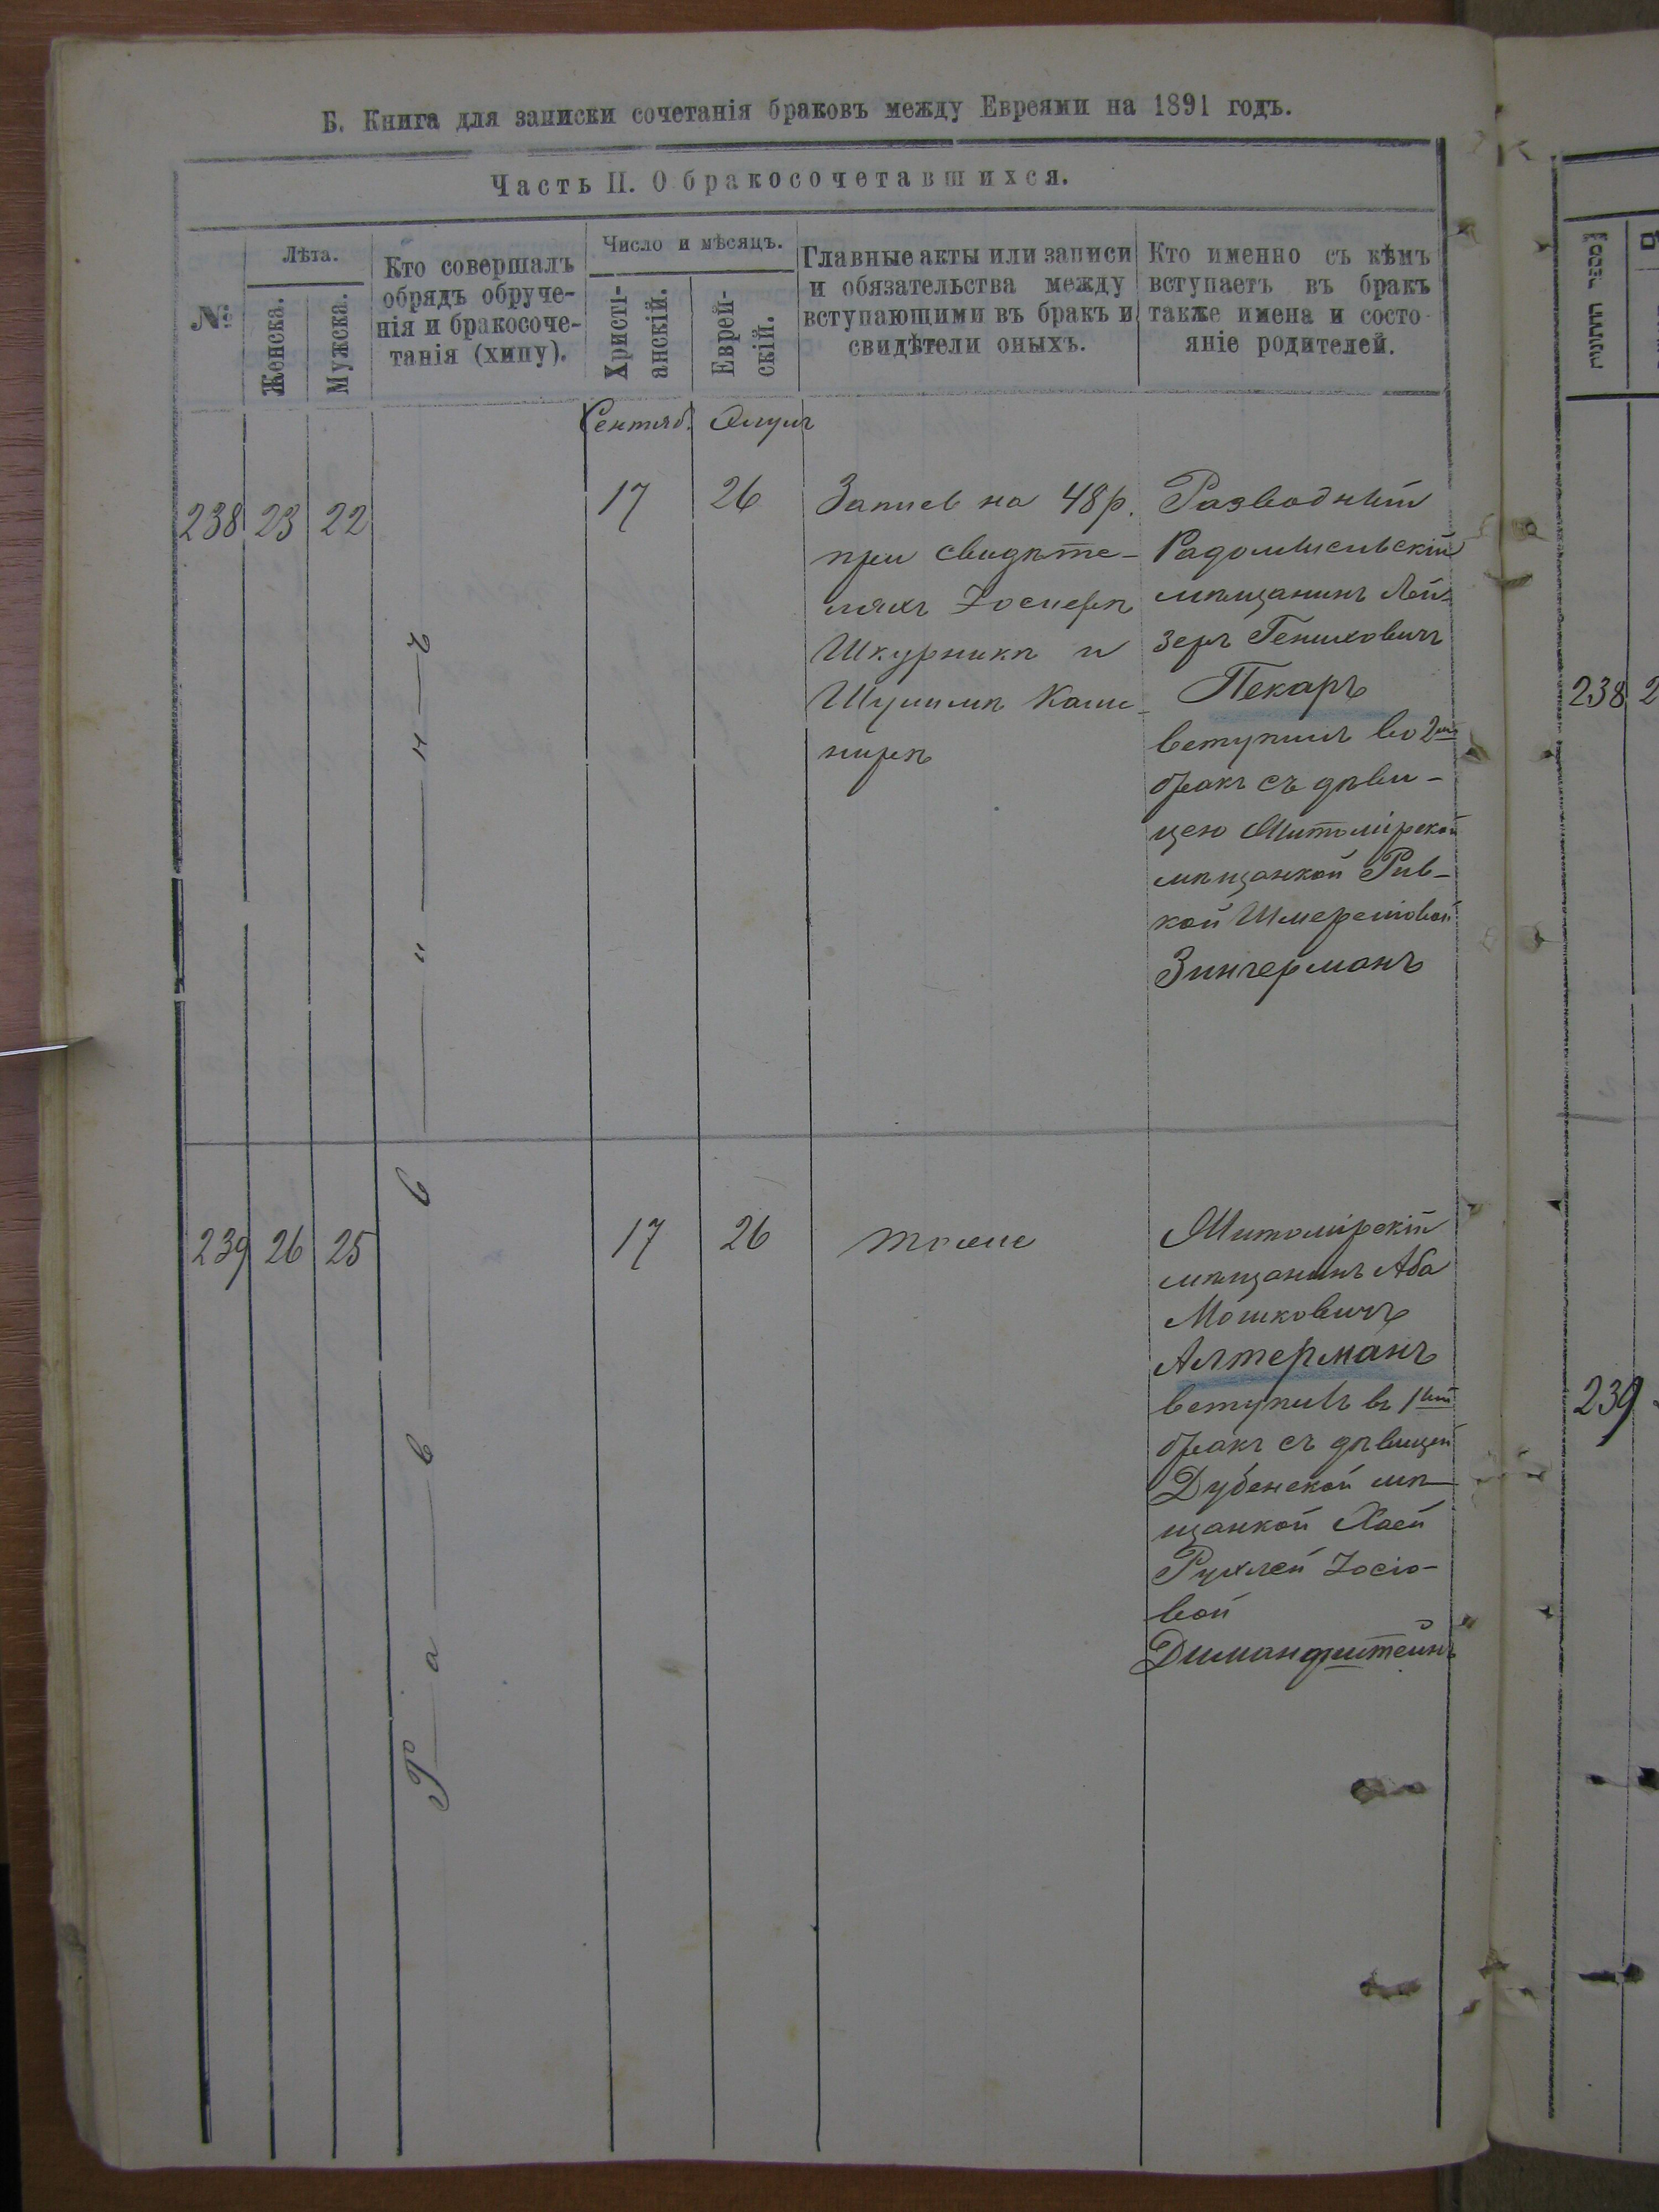 Б. Книга для записки сочетанія браковъ между Евреями на 1891 годъ.
Часть II. О бракосочетавшихся.
№
Лѣта.
Женска.
Мужска.
Кто совершалъ
обрядъ обруче-
нія и бракосоче-
танія (хипу).
Число и мѣсяцъ.
Христі-
анскій.
Еврей-
скій.
Главные акты или записи
и обязательства между
вступающими въ бракъ и
свидѣтели оныхъ.
Кто именно съ кѣмъ
вступаетъ въ бракъ
также имена и состо-
яніе родителей.
Сентяб. Элулъ
238 23 22
17 26
Запись на 48 р.
при свидѣте-
ляхъ Іосифѣ
Шкурникѣ и
Шулимѣ Каш-
нирѣ
Разводный
Радомысльскій
мѣщанинъ Лей-
зеръ Гениховичъ
Пекаръ
вступилъ во 2ой
бракъ съ дѣви-
цею Житомірской
мѣщанкой Рив-
кой Шмереловой
Зингерманъ
239 26 25
17 26
тоже
Житомірскій
мѣщанинъ Аба
Мошковичъ
Алтерманъ
вступилъ въ 1ый
бракъ съ дѣвицей
Дубенской мѣ-
щанкой Хаей
Рухлей Іосіо-
вой
Димандштейнъ
Р а в в и н ъ
238 2
239